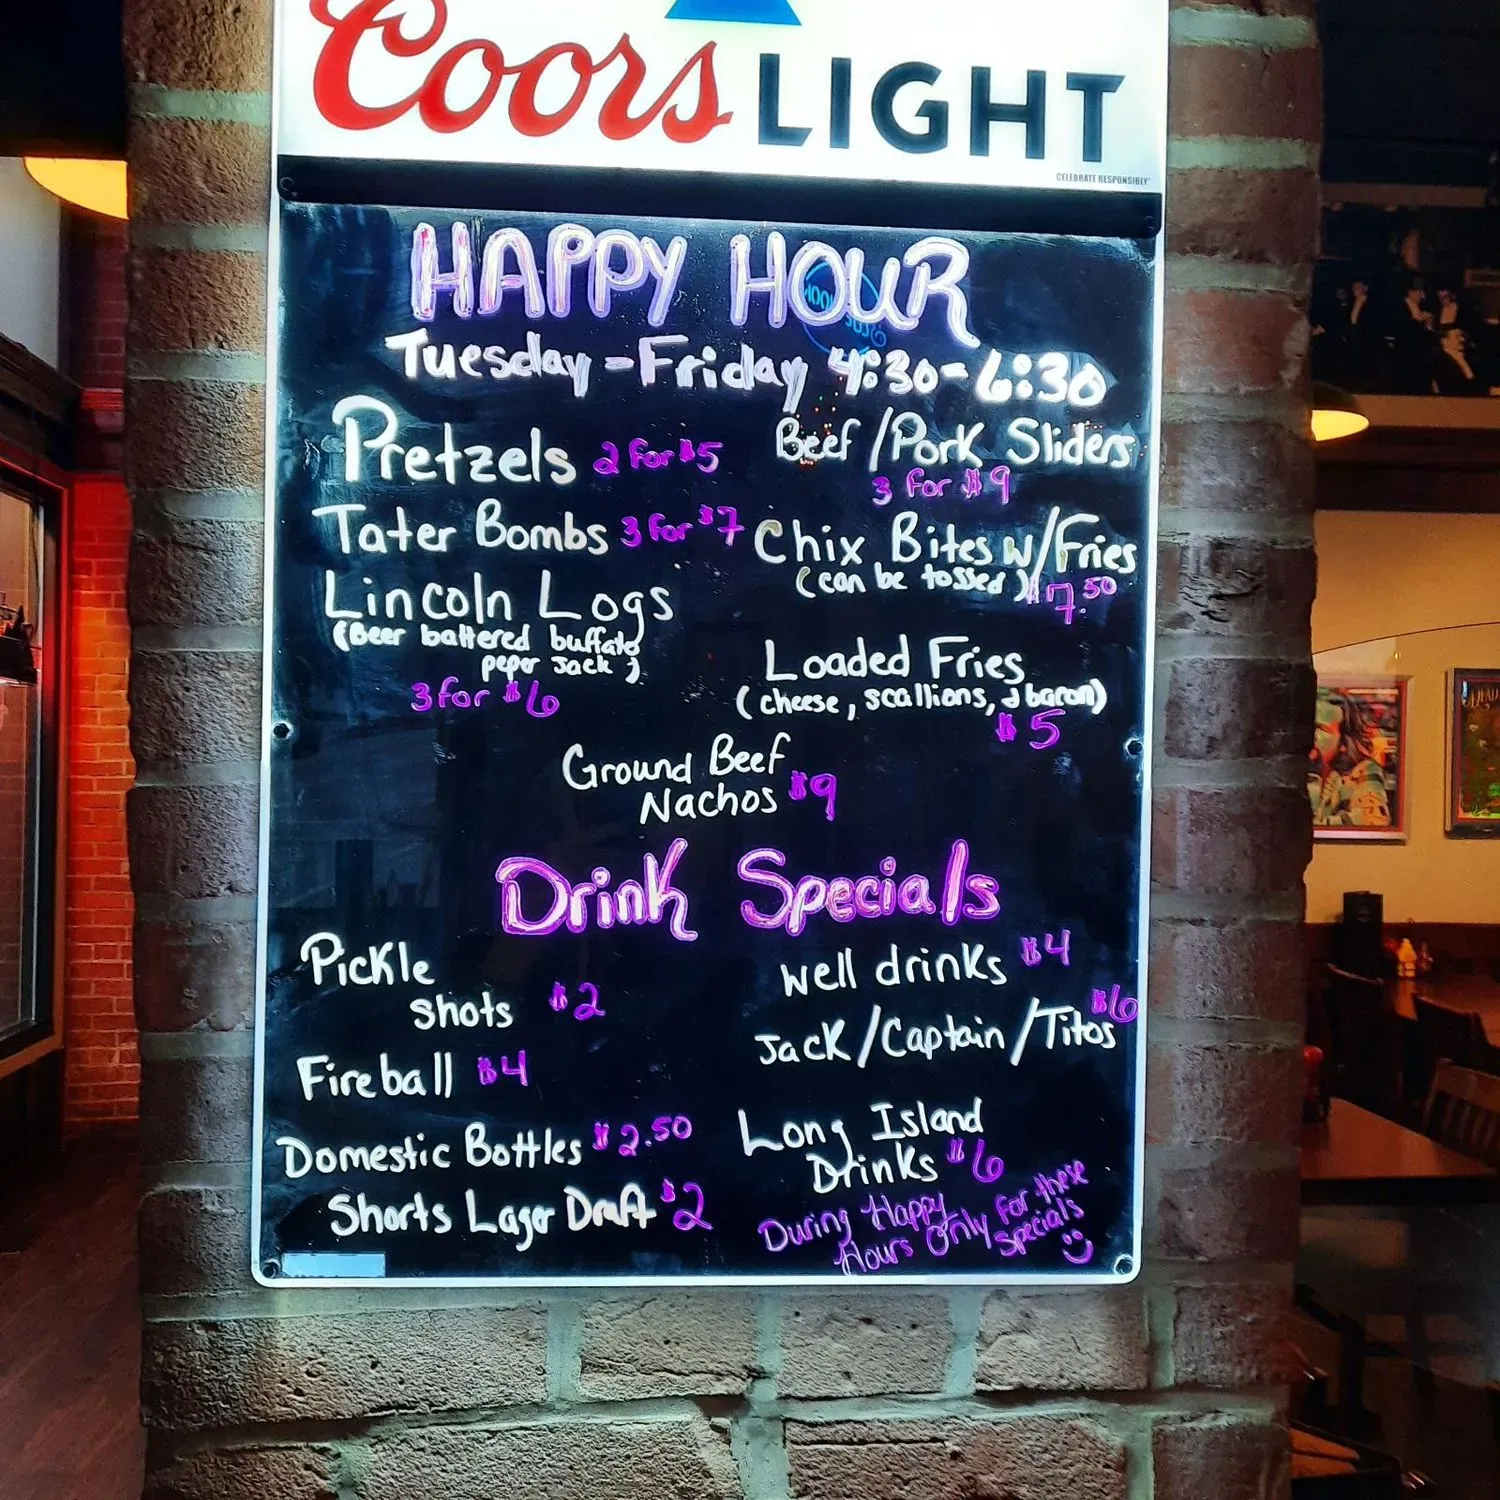 Coors LIGHT
CELEBRATE RESPONSIBLY
HAPPY HOUR
Tuesday - Friday 4:30-6:30
Pretzels 2 for $5
Tater Bombs 3 for $7
Lincoln Logs
(Beer battered buffalo
peper Jack)
3 for $6
Beef/Pork Sliders
3 for $9
Chix Bites w/Fries
(can be tossed) $7.50
Loaded Fries
(cheese, scallions, & bacon)
$5
Ground Beef
Nachos $9
Drink Specials
Pickle
shots $2
Fireball $4
Domestic Bottles $2.50
Shorts Lager Draft $2
well drinks $4
Jack/Captain/Titos $6
Long Island
Drinks $6
During Happy
Hours Only for these
specials